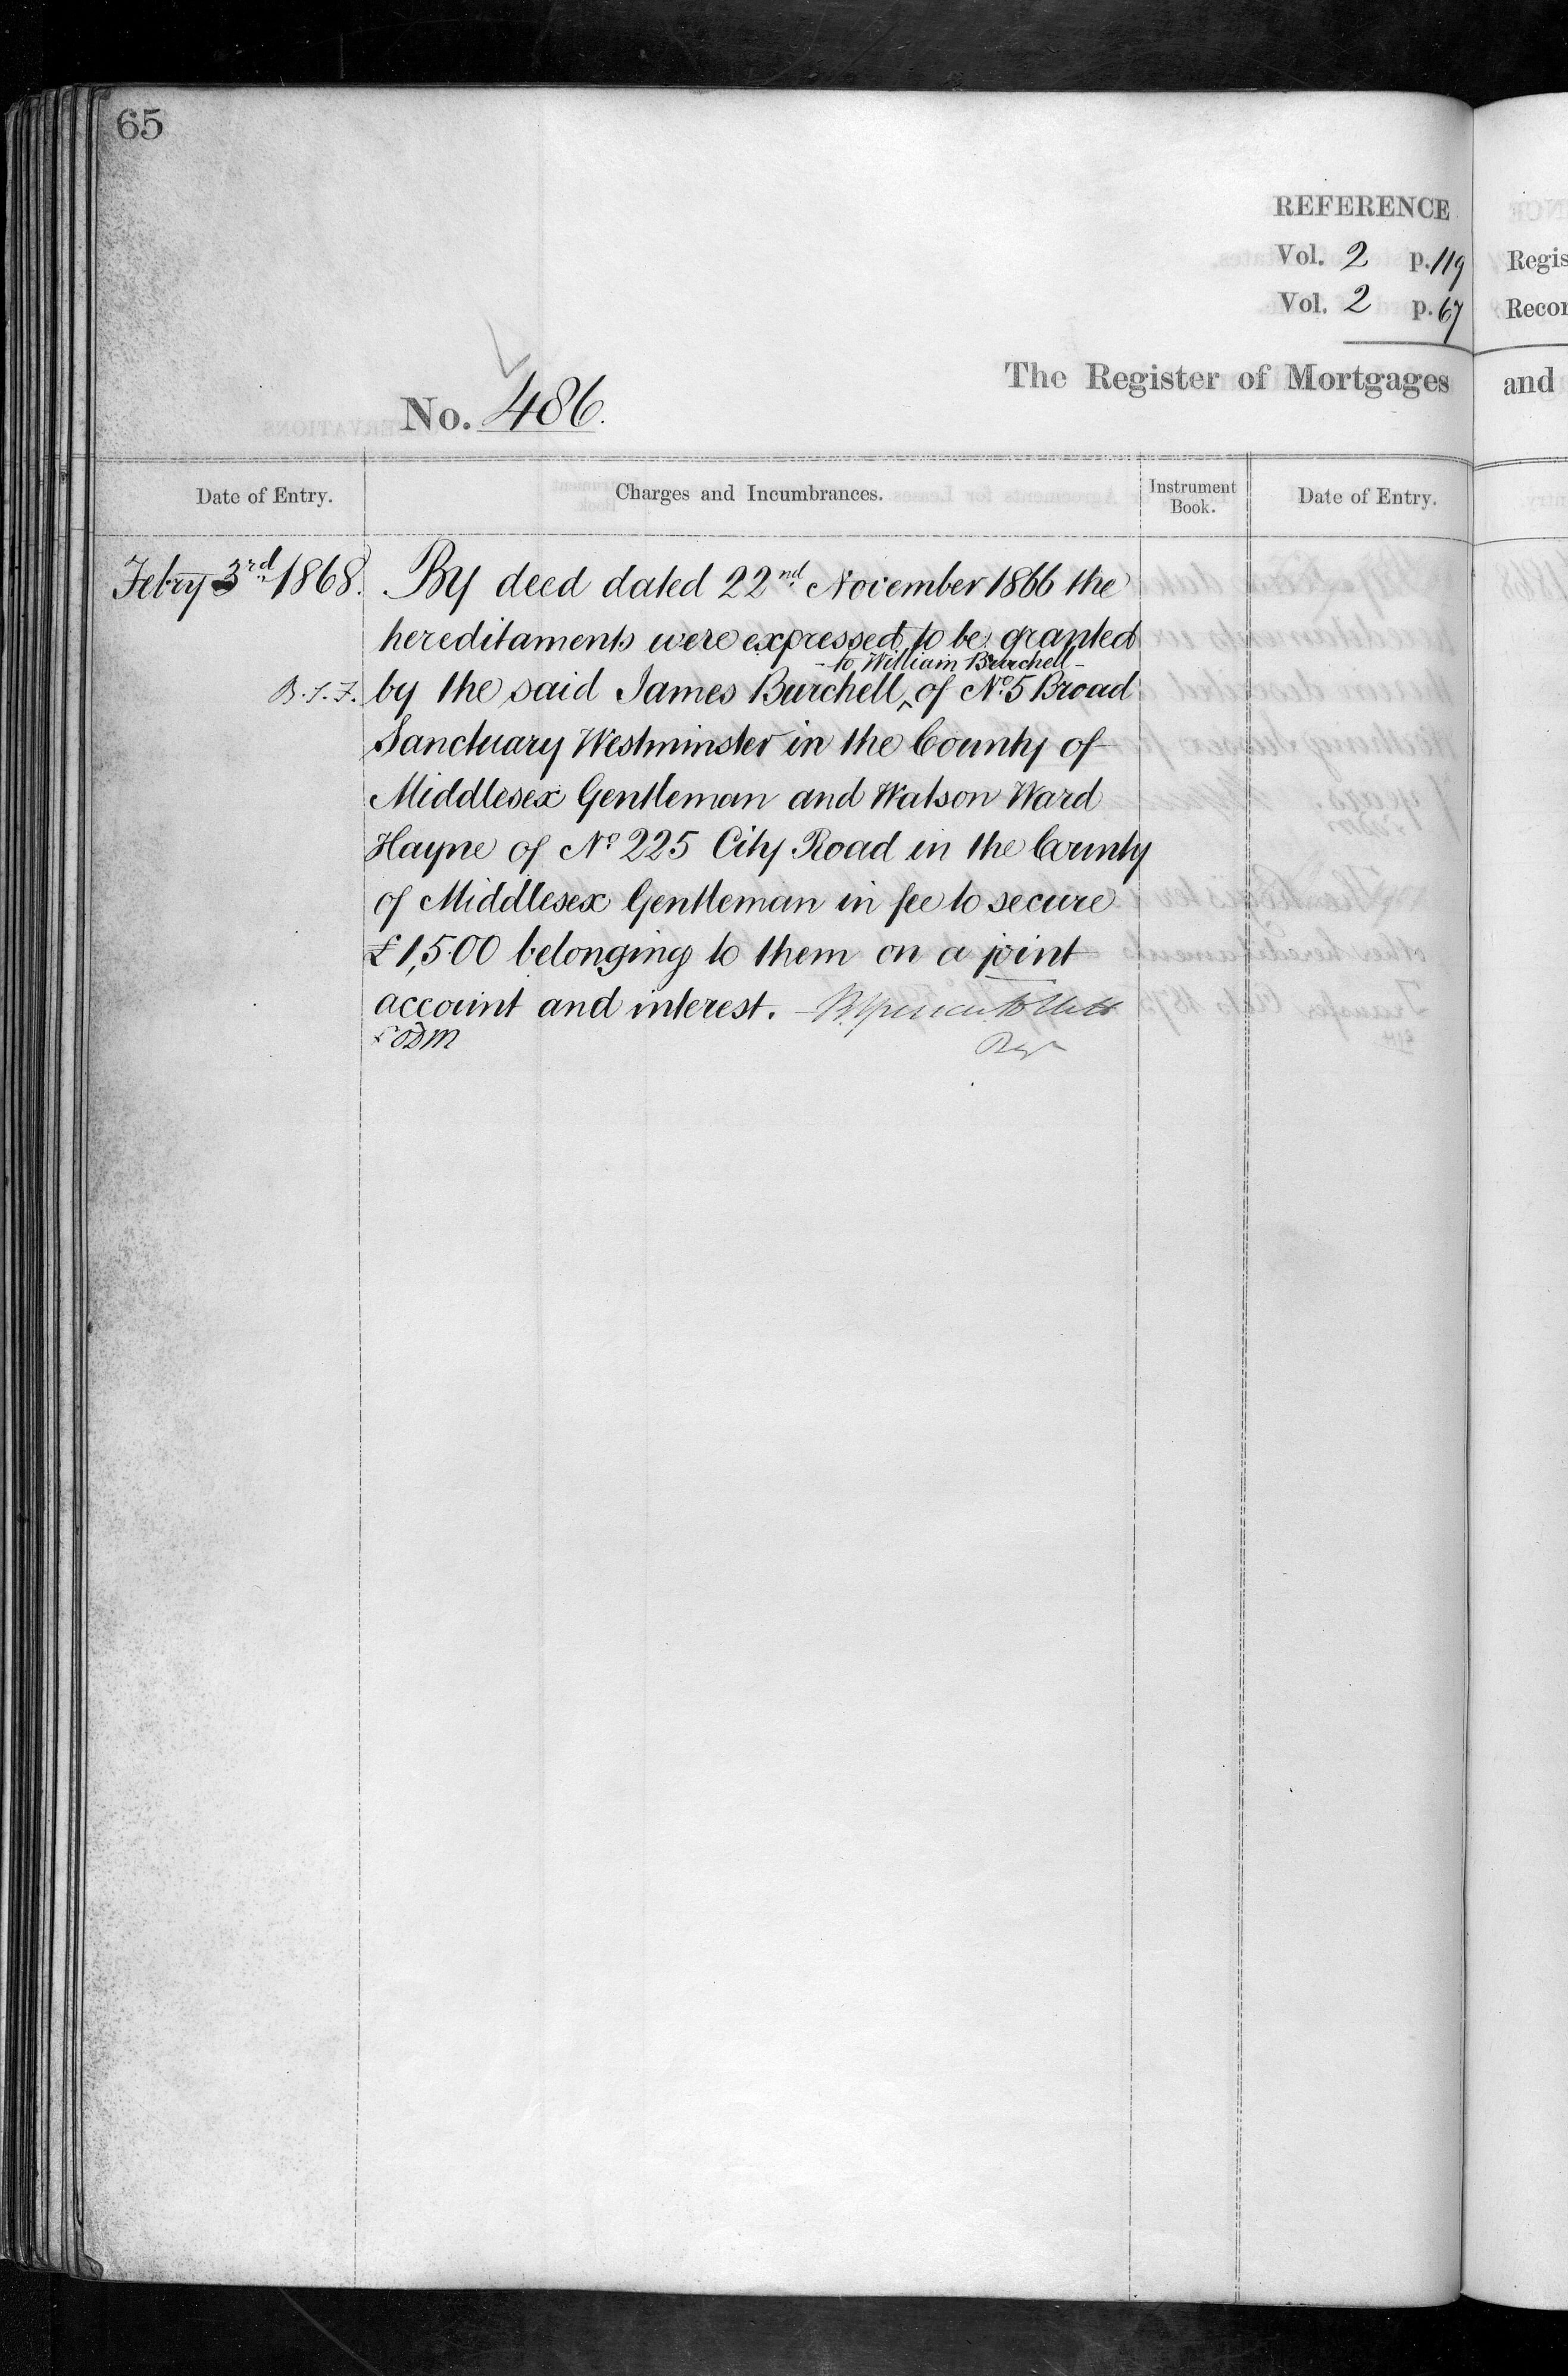 65
REFERENCE
Vol. 2 p. 119
Vol. 2 p. 67
The Register of Mortgages
No. 486.
Date of Entry.
Charges and Incumbrances.
Instrument Book.
Date of Entry.
Febry 3rd 1868.
By deed dated 22nd November 1866 the
hereditaments were expressed to be granted
- to William Burchell -
B.S.F. by the said James Burchell ‸ of No 5 Broad
Sanctuary Westminster in the County of
Middlesex Gentleman and Watson Ward
Hayne of No 225 City Road in the County
of Middlesex Gentleman in fee to secure
£1,500 belonging to them on a joint
account and interest.
Regr
Regis
Recor
and